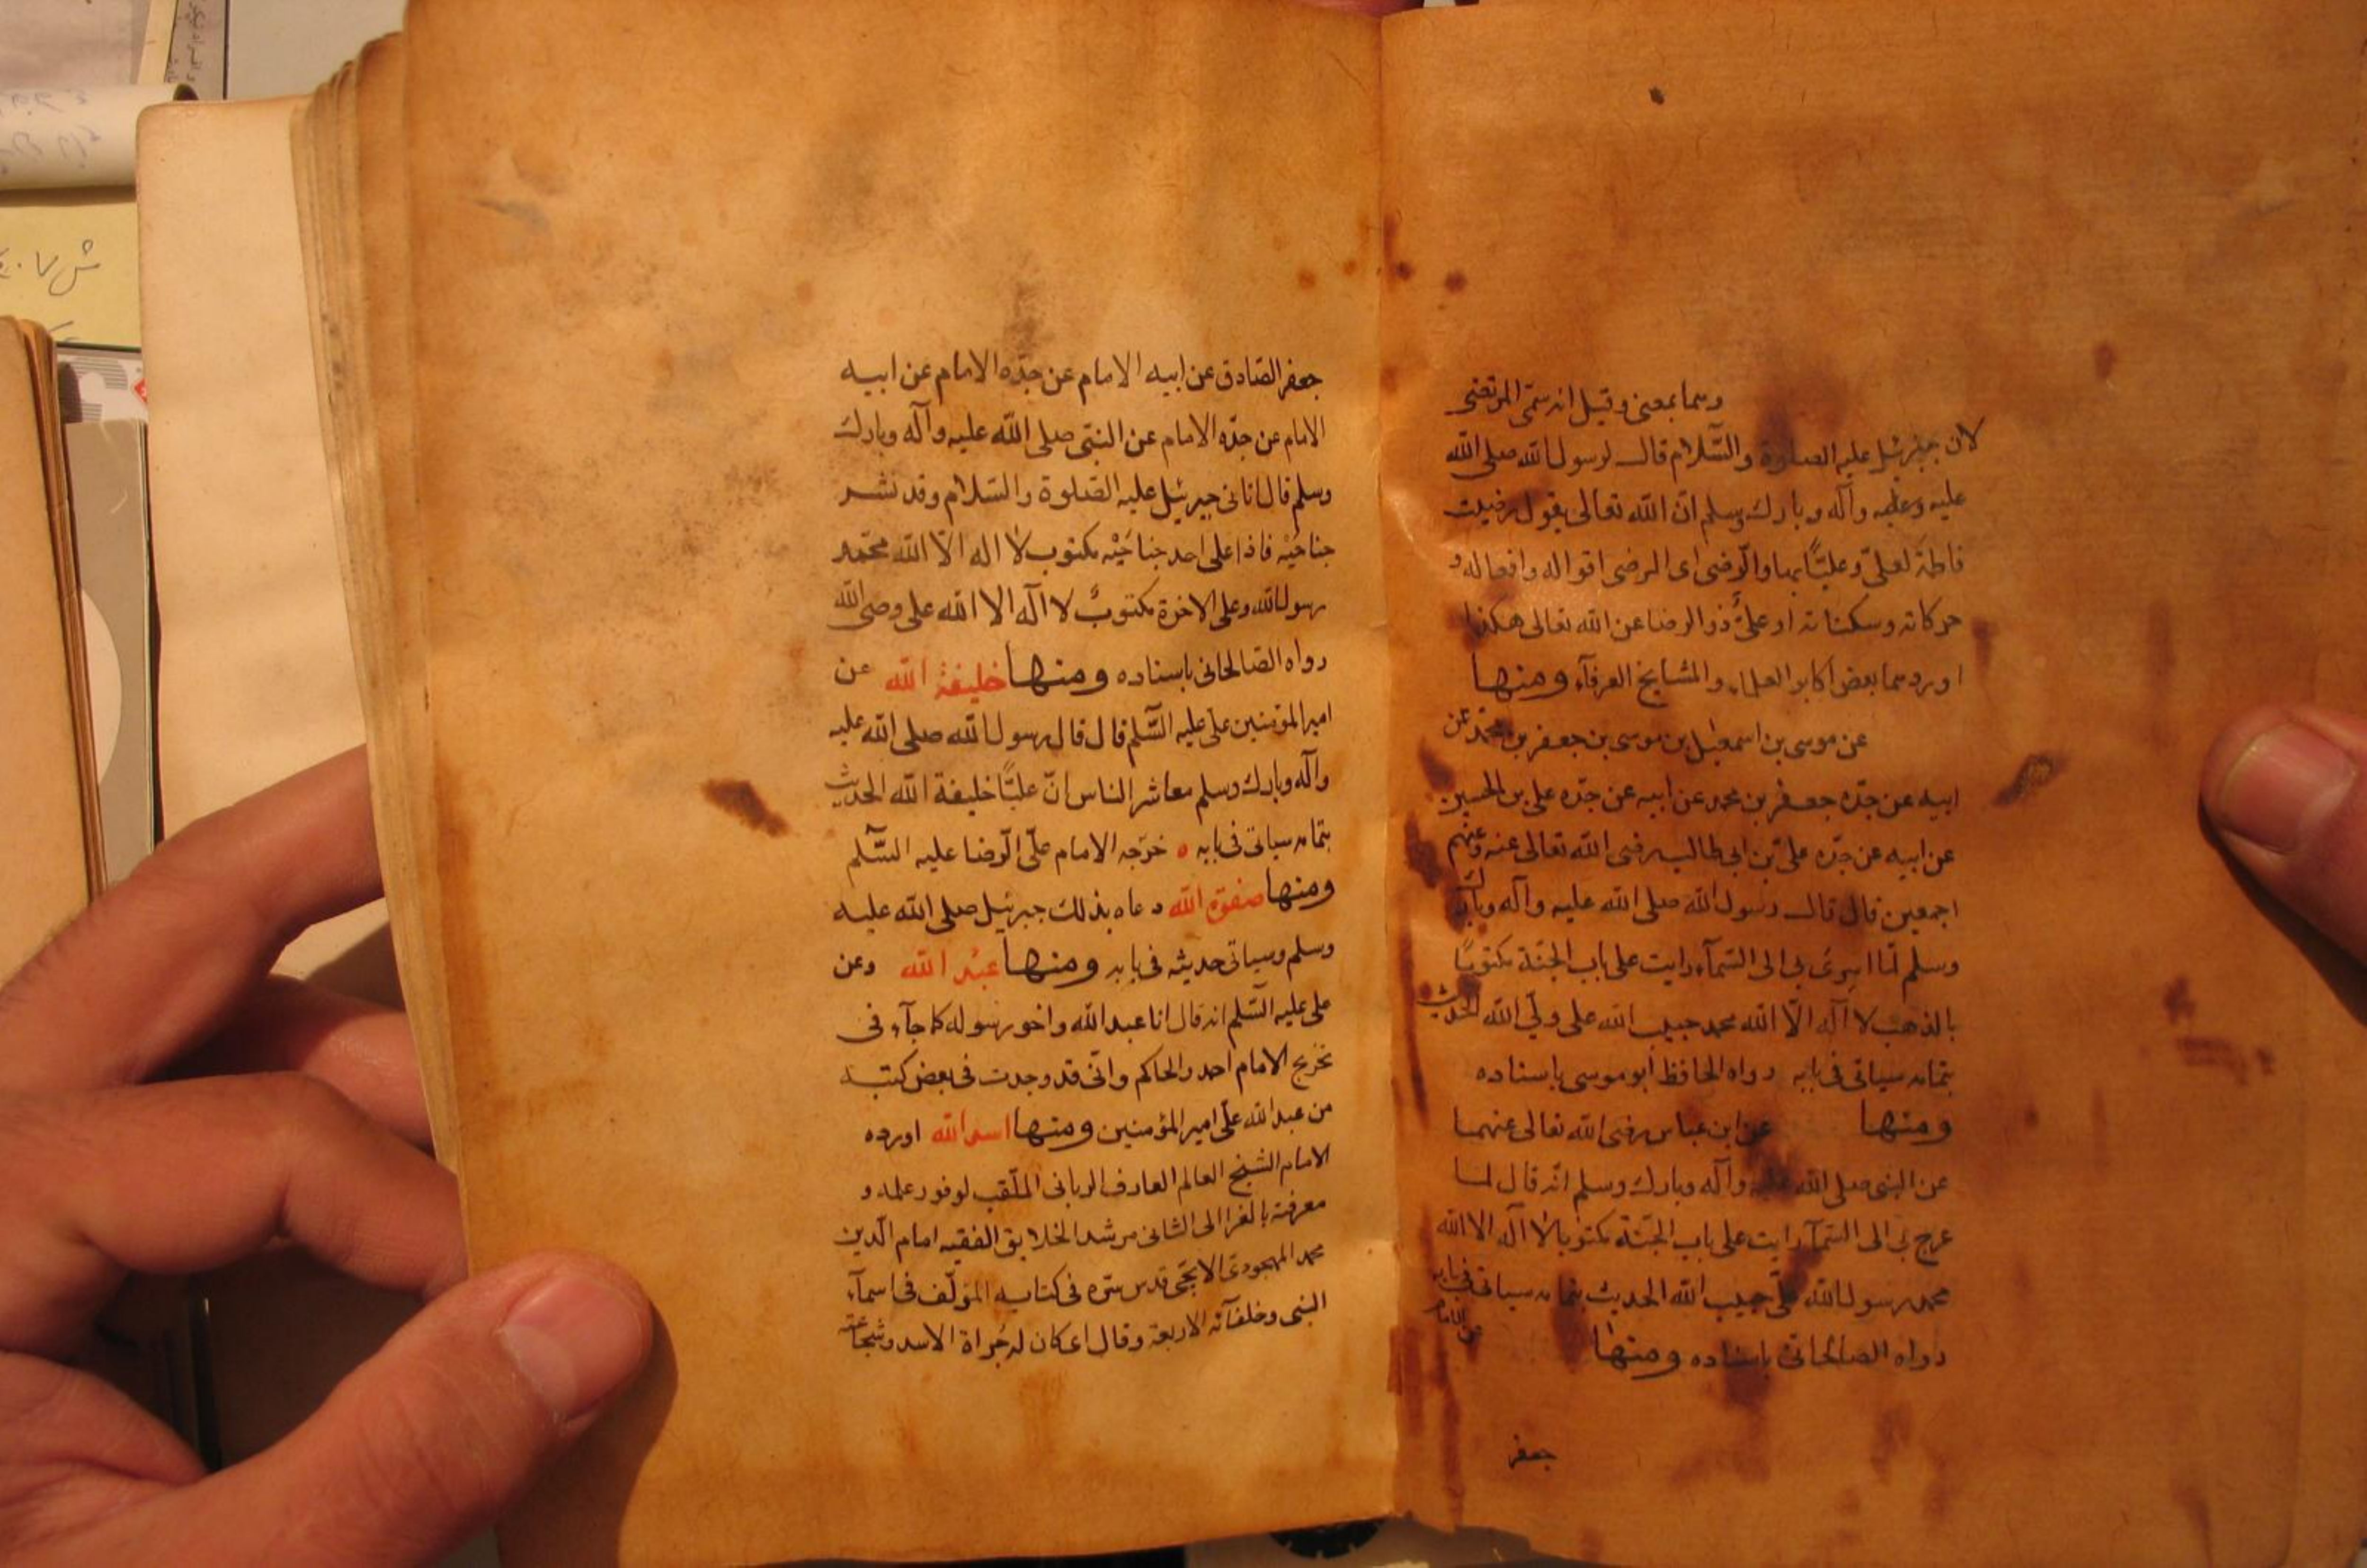 وسما بمعنى وقيل انه سمّى المرتضى
لان جبرئيل عليه الصلوة والسّلام قال لرسول الله صلى الله
عليه وعليه وآله وبارك وسلم انّ الله تعالى يقول رضيت
فاطمة لعلىّ وعليّاً بها والرّضى اى الرضى اقواله وافعاله و
حركاته وسكناته او علىٌّ ذو الرضا عن الله تعالى هكذا
اوردهما بعض اكابر العلماء والمشايخ العرفآء ومنها
عن موسى بن اسمعيل بن موسى بن جعفر بن محمّد عن
ابيه عن جدّه جعفر بن محمد عن ابيه عن جدّه على بن الحسين
عن ابيه عن جدّه علىّ بن ابى طالب رضى الله تعالى عنه وعنهم
اجمعين قال قال رسول الله صلى الله عليه وآله وبارك
وسلم لمّا اسرى بى الى السّمآء رايت على باب الجنّة مكتوبًا
بالذهب لا آله الّا الله محمد حبيب الله على ولىّ الله الحديث
بتمامه سياتى فى بابه رواه الحافظ ابو موسى باسناده
ومنها عن ابن عباس رضى الله تعالى عنهما
عن النبى صلى الله عليه وآله وبارك وسلم انّه قال لما
عرج بى الى السّمآء رايت على باب الجنّة مكتوبا لا آله الا الله
محمد رسول الله علىّ حبيب الله الحديث بتمامه سياتى فى بابه
رواه الصالحانى باسناده ومنها عن الامام
جعفر
جعفر الصّادق عن ابيه الامام عن جدّه الامام عن ابيه
الامام عن جدّه الامام عن النبىّ صلى الله عليه وآله وبارك
وسلم قال اتانى جبرئيل عليه الصّلوة والسّلام وقد نشر
جناحَيْه فاذا على احد جناحَيْه مكتوب لا اله الّا الله محمّد
رسول الله وعلى الاخرة مكتوبٌ لا آله الا الله على وصى الله
رواه الصّالحانى باسناده ومنها خليفة الله عن
امير المؤمنين على عليه السّلم قال قال رسول الله صلى الله عليه
وآله وبارك وسلم معاشر الناس انّ عليّاً خليفة الله الحديث
بتمامه سياتى فى بابه ه خرّجه الامام علىّ الرّضا عليه السّلم
ومنها صفوة الله دعاه بذلك جبرئيل صلى الله عليه
وسلم وسياتى حديثه فى بابه ومنها عبْد الله وعن
على عليه السّلم انه قال انا عبد الله واخو رسوله كما جآء فى
تخريج الامام احمد والحاكم وانّى قد وجدت فى بعض كتبه
من عبد الله علىّ امير المؤمنين ومنها اسد الله اورده
الامام الشيخ العالم العارف الربانى الملّقب لوفور علمه و
معرفته بالغزالى الثانى مرشد الخلايق الفقيه امام الّدين
محمد الايجّى قدس سّره فى كتابه المؤلّف فى اسمآء
النبى وخلفآئه الاربعة وقال اى كان له جُراة الاسد وشجاعته